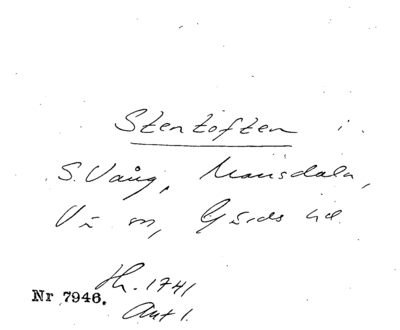 Stentoften i
S. Vång, Mansdala,
V i m, Gärds hd.
Hh. 1741
Nr 7946.
Avt 1.